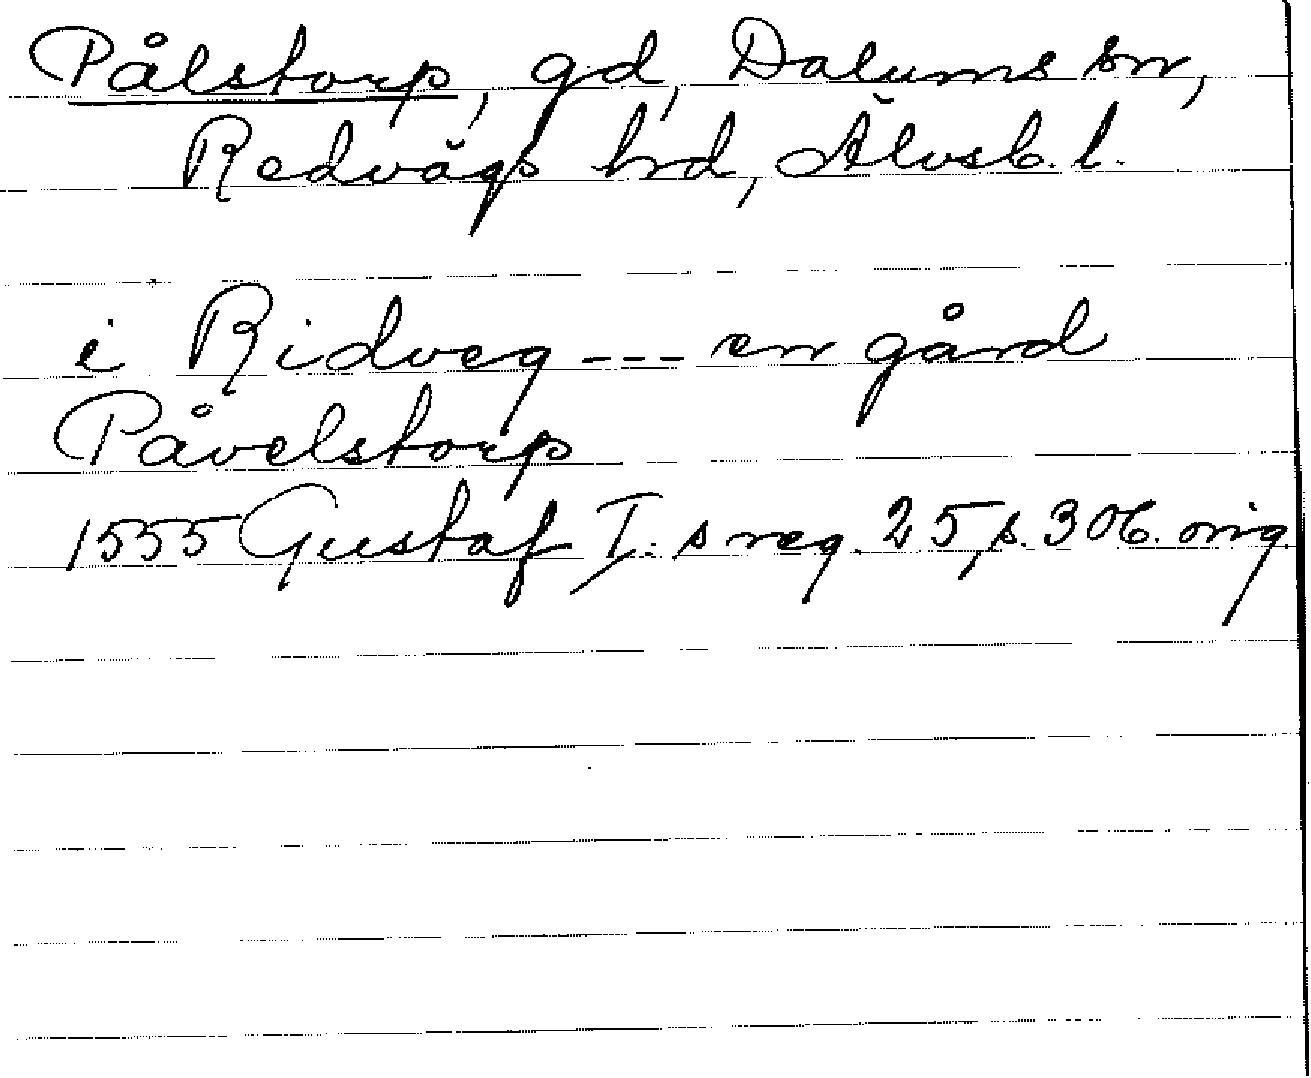 Pålstorp, gd, Dalums sn,
Redvägs hd, Älvsb. l.
i Ridveg --- en gård
Påvelstorp
1555 Gustaf I:s reg. 25, s. 306. orig.